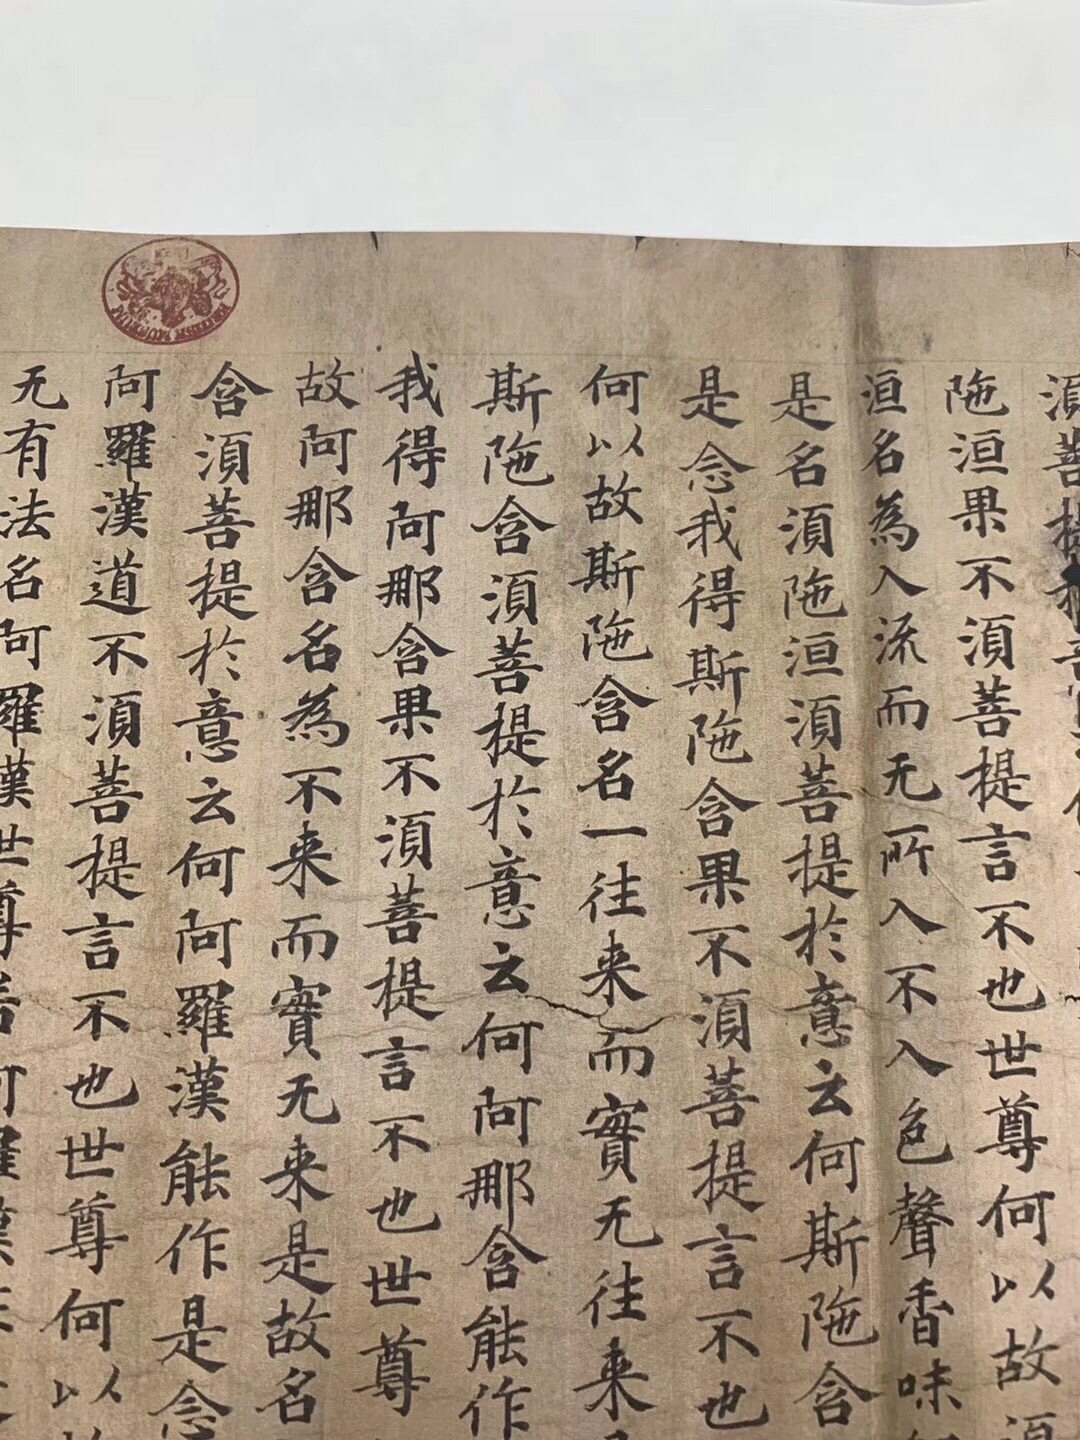 湏菩提
陁洹果不湏菩提言不也世尊何以故湏
洹名為入流而无所入不入色聲香味
是名湏陁洹湏菩提於意云何斯陁含
是念我得斯陁含果不湏菩提言不也
何以故斯陁含名一往来而實无往来
斯陁含湏菩提於意云何阿那含能作
我得阿那含果不湏菩提言不也世尊
故阿那含名為不来而實无来是故名
含湏菩提於意云何阿羅漢能作是念
阿羅漢道不湏菩提言不也世尊何以
无有法名阿羅漢世尊若阿羅漢
BRITISH MUSEUM